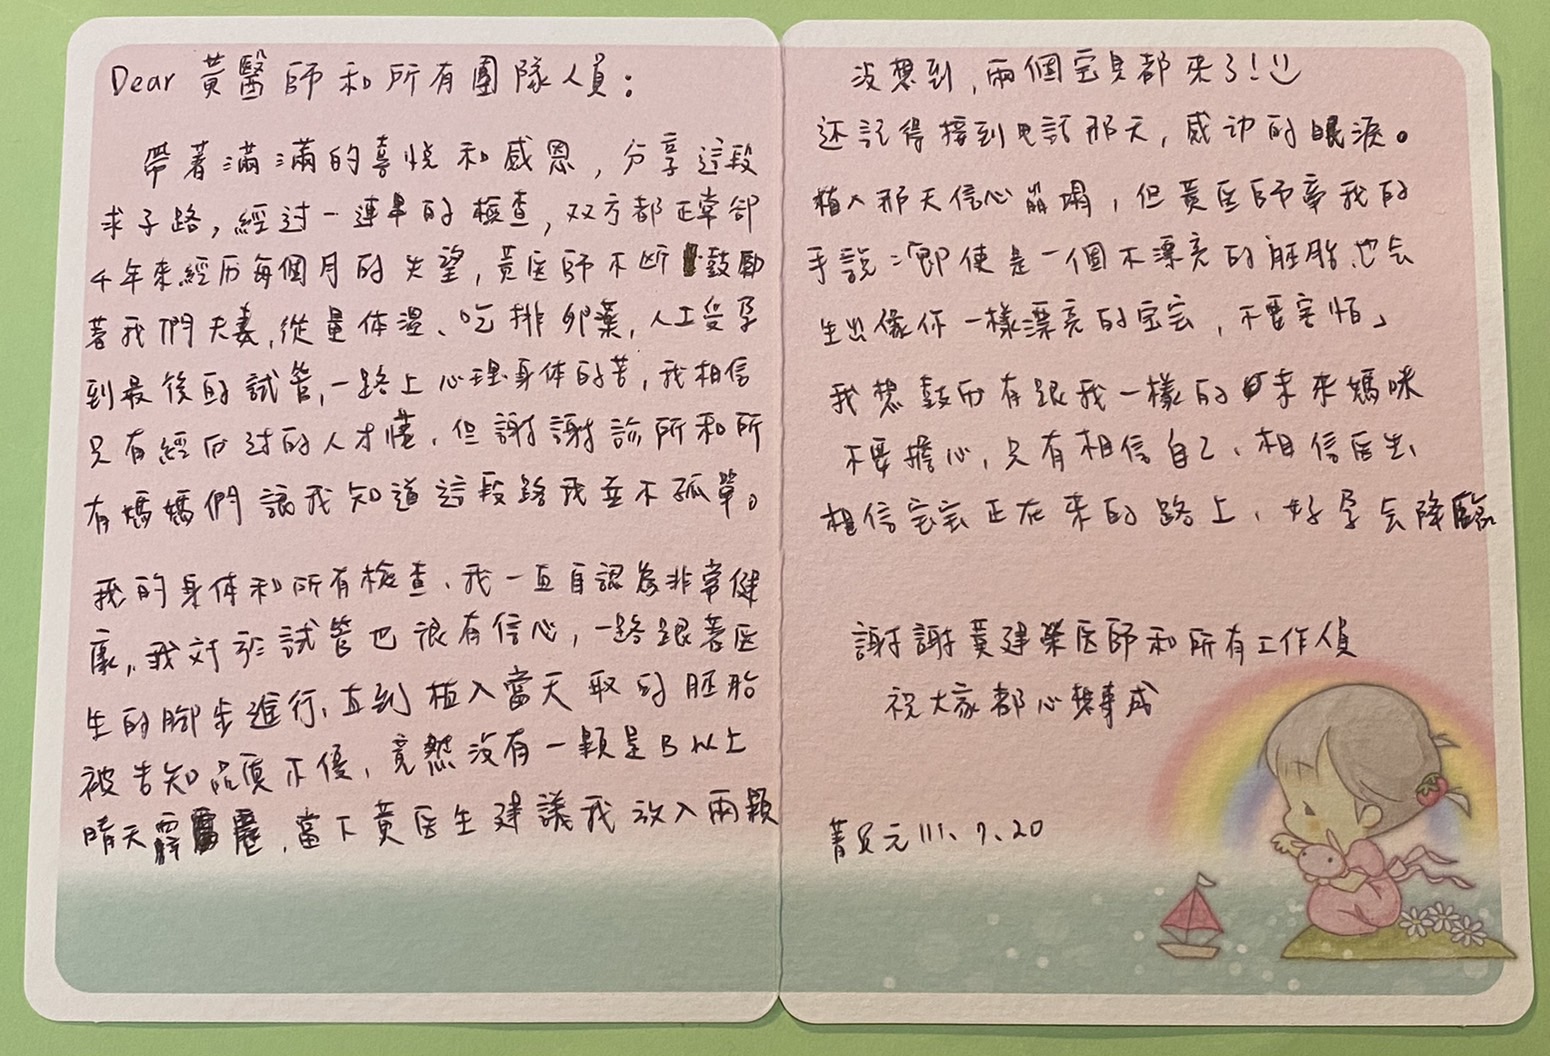 Dear 黃醫師和所有團隊人員：
帶著滿滿的喜悅和感恩，分享這段
求子路，經过一連串的檢查，双方都正常卻
4年來經历每個月的失望，黃医師不断鼓勵
著我們夫妻，從量体溫、吃排卵藥，人工受孕
到最後的試管，一路上心理身体的苦，我相信
只有經历过的人才懂，但謝謝診所和所
有媽媽們讓我知道這段路我並不孤單。
我的身体和所有檢查，我一直自認為非常健
康，我対於試管也很有信心，一路跟著医
生的腳步進行，直到植入當天取的胚胎
被告知品質不優，竟然沒有一顆是B以上
晴天霹靂，當下黃医生建議我放入兩顆
沒想到，兩個宝貝都來了！
还記得接到电話那天，感动的眼淚。
植入那天信心崩塌，但黃医師牽我的
手說：「即使是一個不漂亮的胚胎也会
生出像你一樣漂亮的宝宝，不要害怕」
我想鼓励有跟我一樣的未來媽咪
不要擔心，只有相信自己、相信医生、
相信宝宝正在來的路上，好孕会降臨
謝謝黃建榮医師和所有工作人員
祝大家都心想事成
元 111、7、20